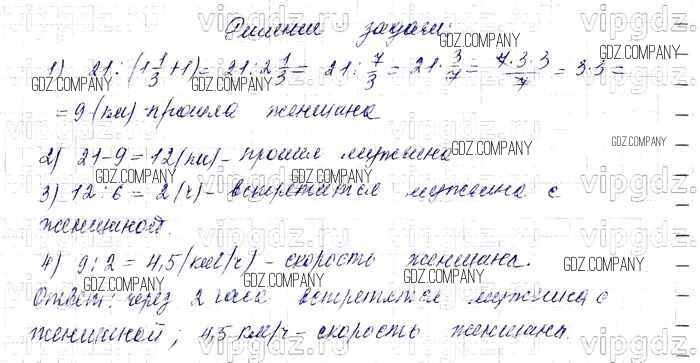 Решение задачи:
1) 21 : (1 1/3 + 1) = 21 : 2 1/3 = 21 : 7/3 = 21 · 3/7 = 7·3·3/7 = 3·3 =
= 9 (км) - прошла женщина
2) 21 - 9 = 12 (км) - прошел мужчина
3) 12 : 6 = 2 (ч) - встретится мужчина с
женщиной.
4) 9 : 2 = 4,5 (км/ч) - скорость женщина.
Ответ: через 2 часа встретятся мужчина с
женщиной; 4,5 км/ч - скорость женщина.
vipgdz.
GDZ.COMPANY